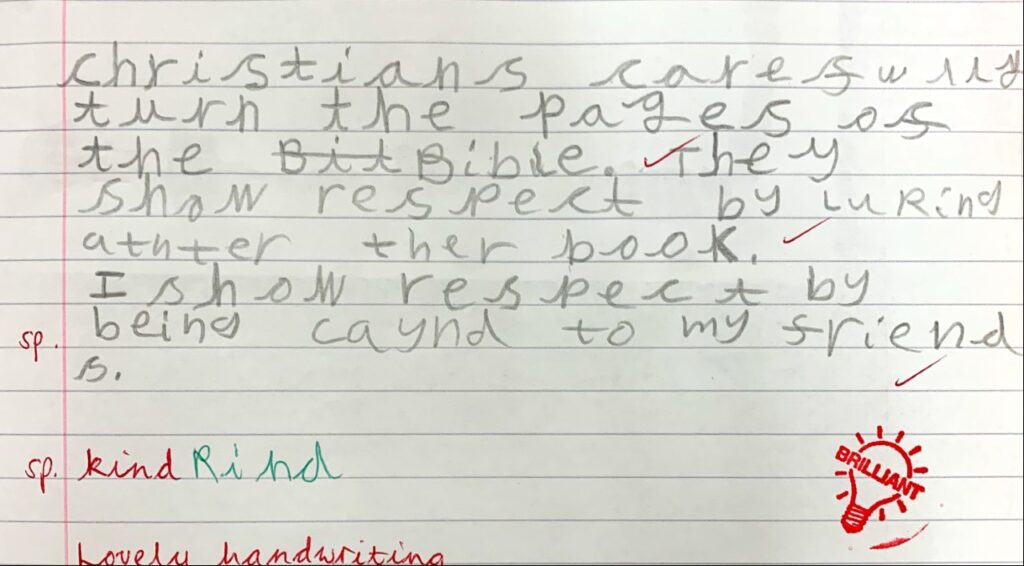 christians caresully
turn the pages os
the Bit Bible. They
show respect by luking
athter ther book.
I show respect by
sp. being caynd to my friend
s.
sp. kind Kind
BRILLIANT
Lovely handwriting